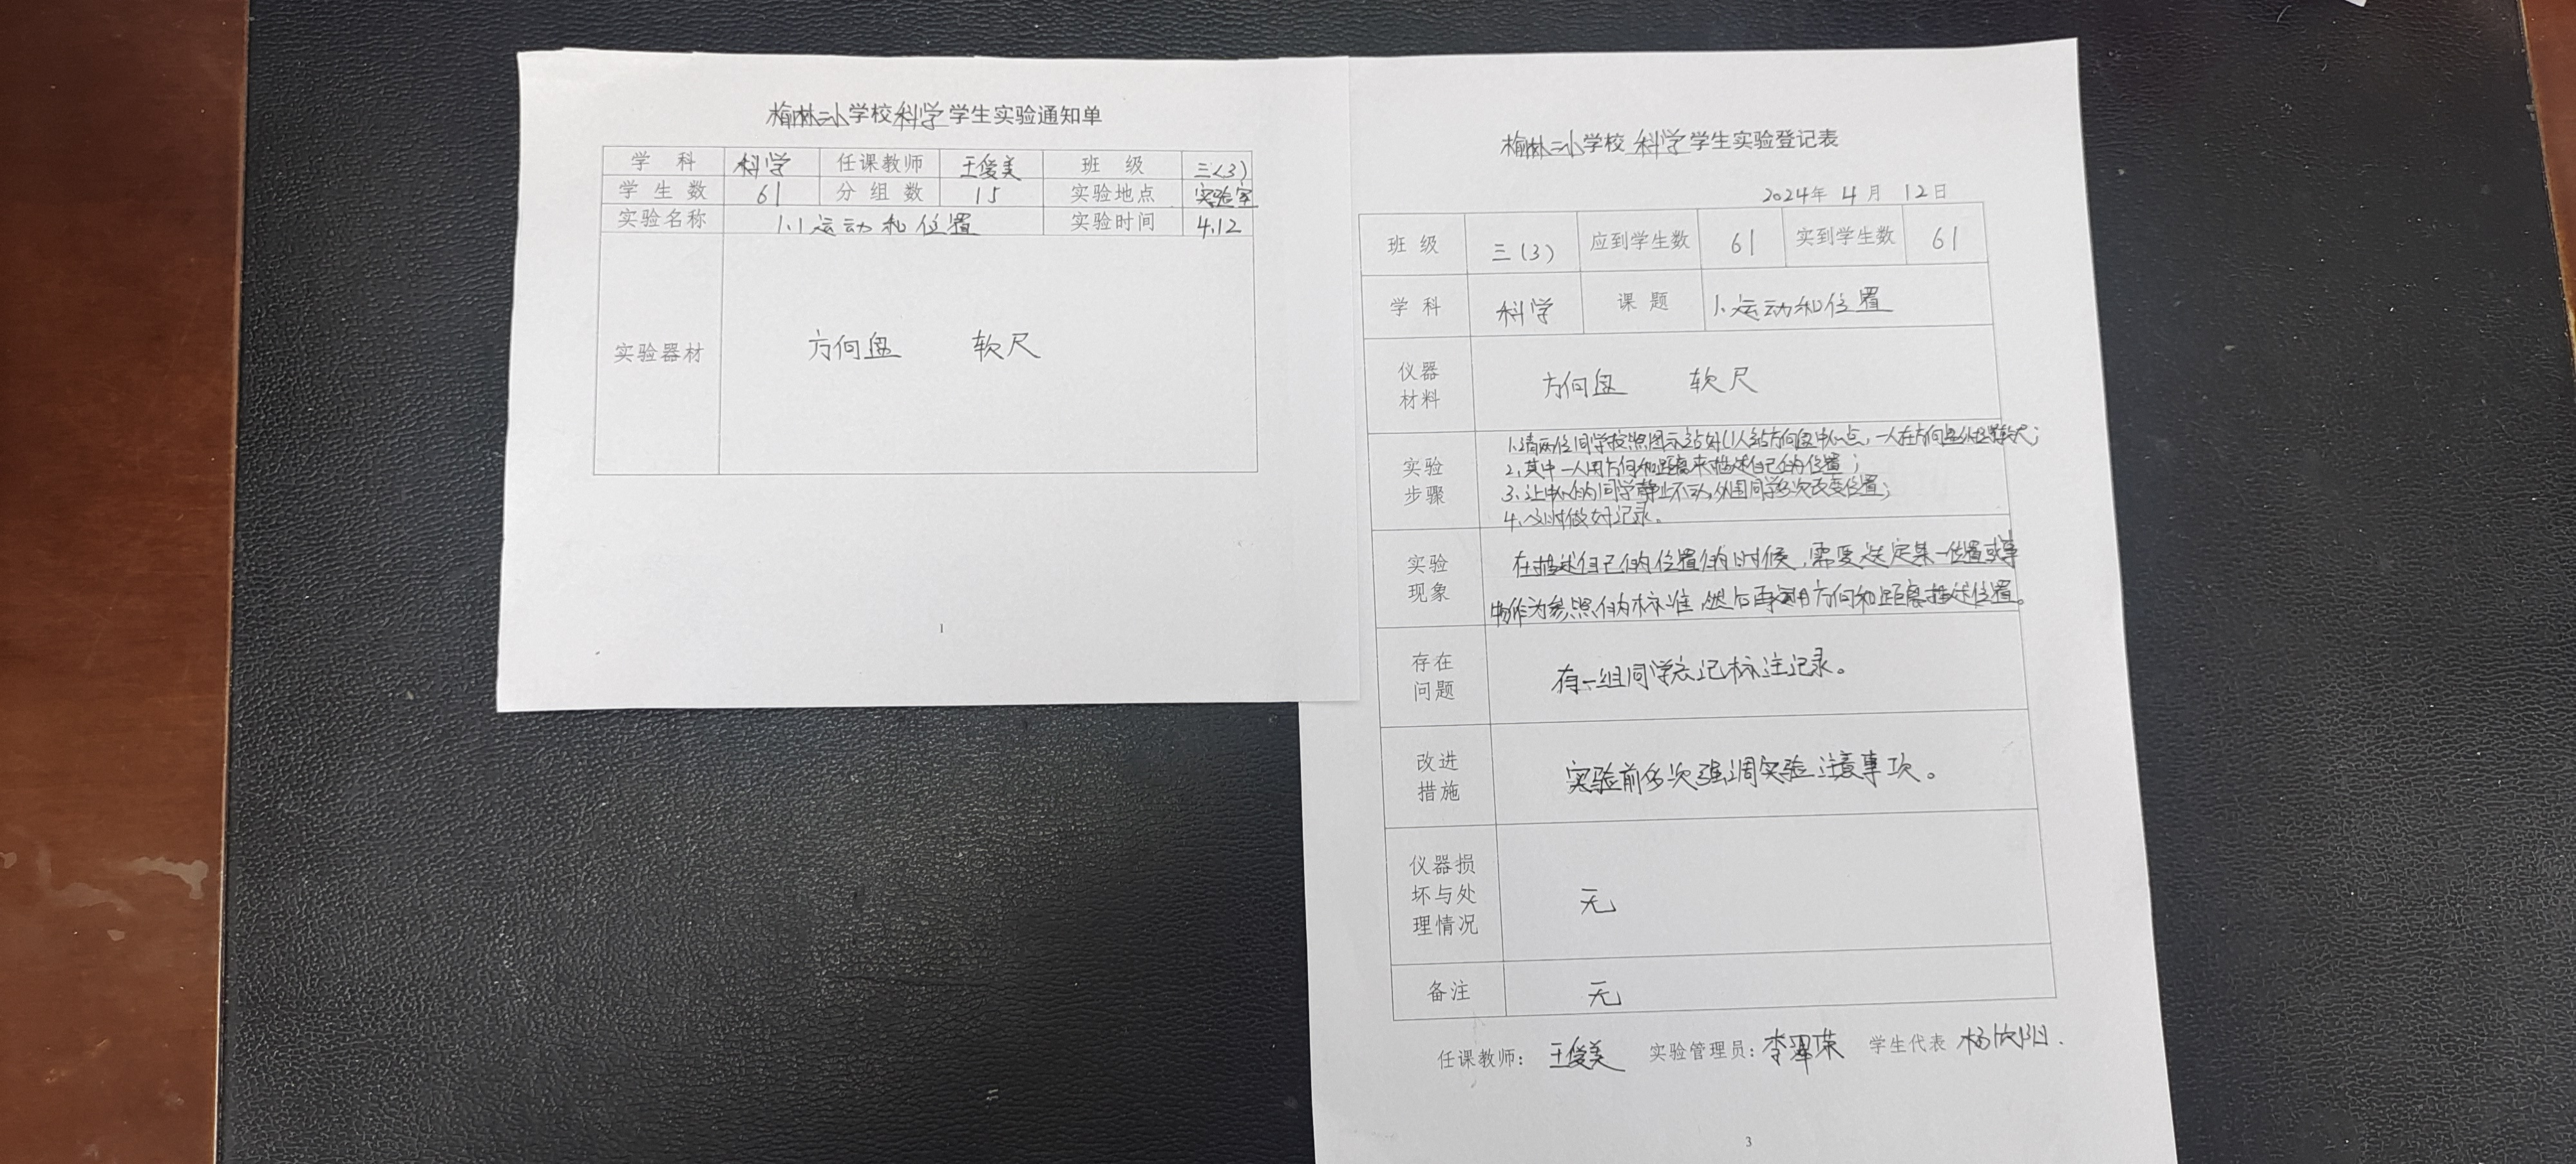 榆林三小学校科学学生实验通知单
学 科 科学 任课教师 王俊美 班 级 三(3)
学 生 数 61 分 组 数 15 实验地点 实验室
实验名称 1.1运动和位置 实验时间 4.12
实验器材 方向盘 软尺
1
榆林三小学校科学学生实验登记表
2024年 4 月 12日
班 级 三(3) 应到学生数 61 实到学生数 61
学 科 科学 课 题 1.运动和位置
仪器
材料
方向盘 软尺
实验
步骤
1.请两位同学按照图示站好(1人站方向盘中心点,一人在方向盘外拉软尺;
2.其中一人用方向和距离来描述自己的位置;
3.让中心的同学静止不动,外围同学多次改变位置;
4.及时做好记录。
实验
现象
在描述自己的位置的时候,需要选定某一位置或事
物作为参照的标准,然后再用方向和距离描述位置。
存在
问题
有一组同学忘记标注记录。
改进
措施
实验前多次强调实验注意事项。
仪器损
坏与处
理情况
无
备注 无
任课教师: 王俊美 实验管理员: 李翠荣 学生代表 杨欣阳.
3